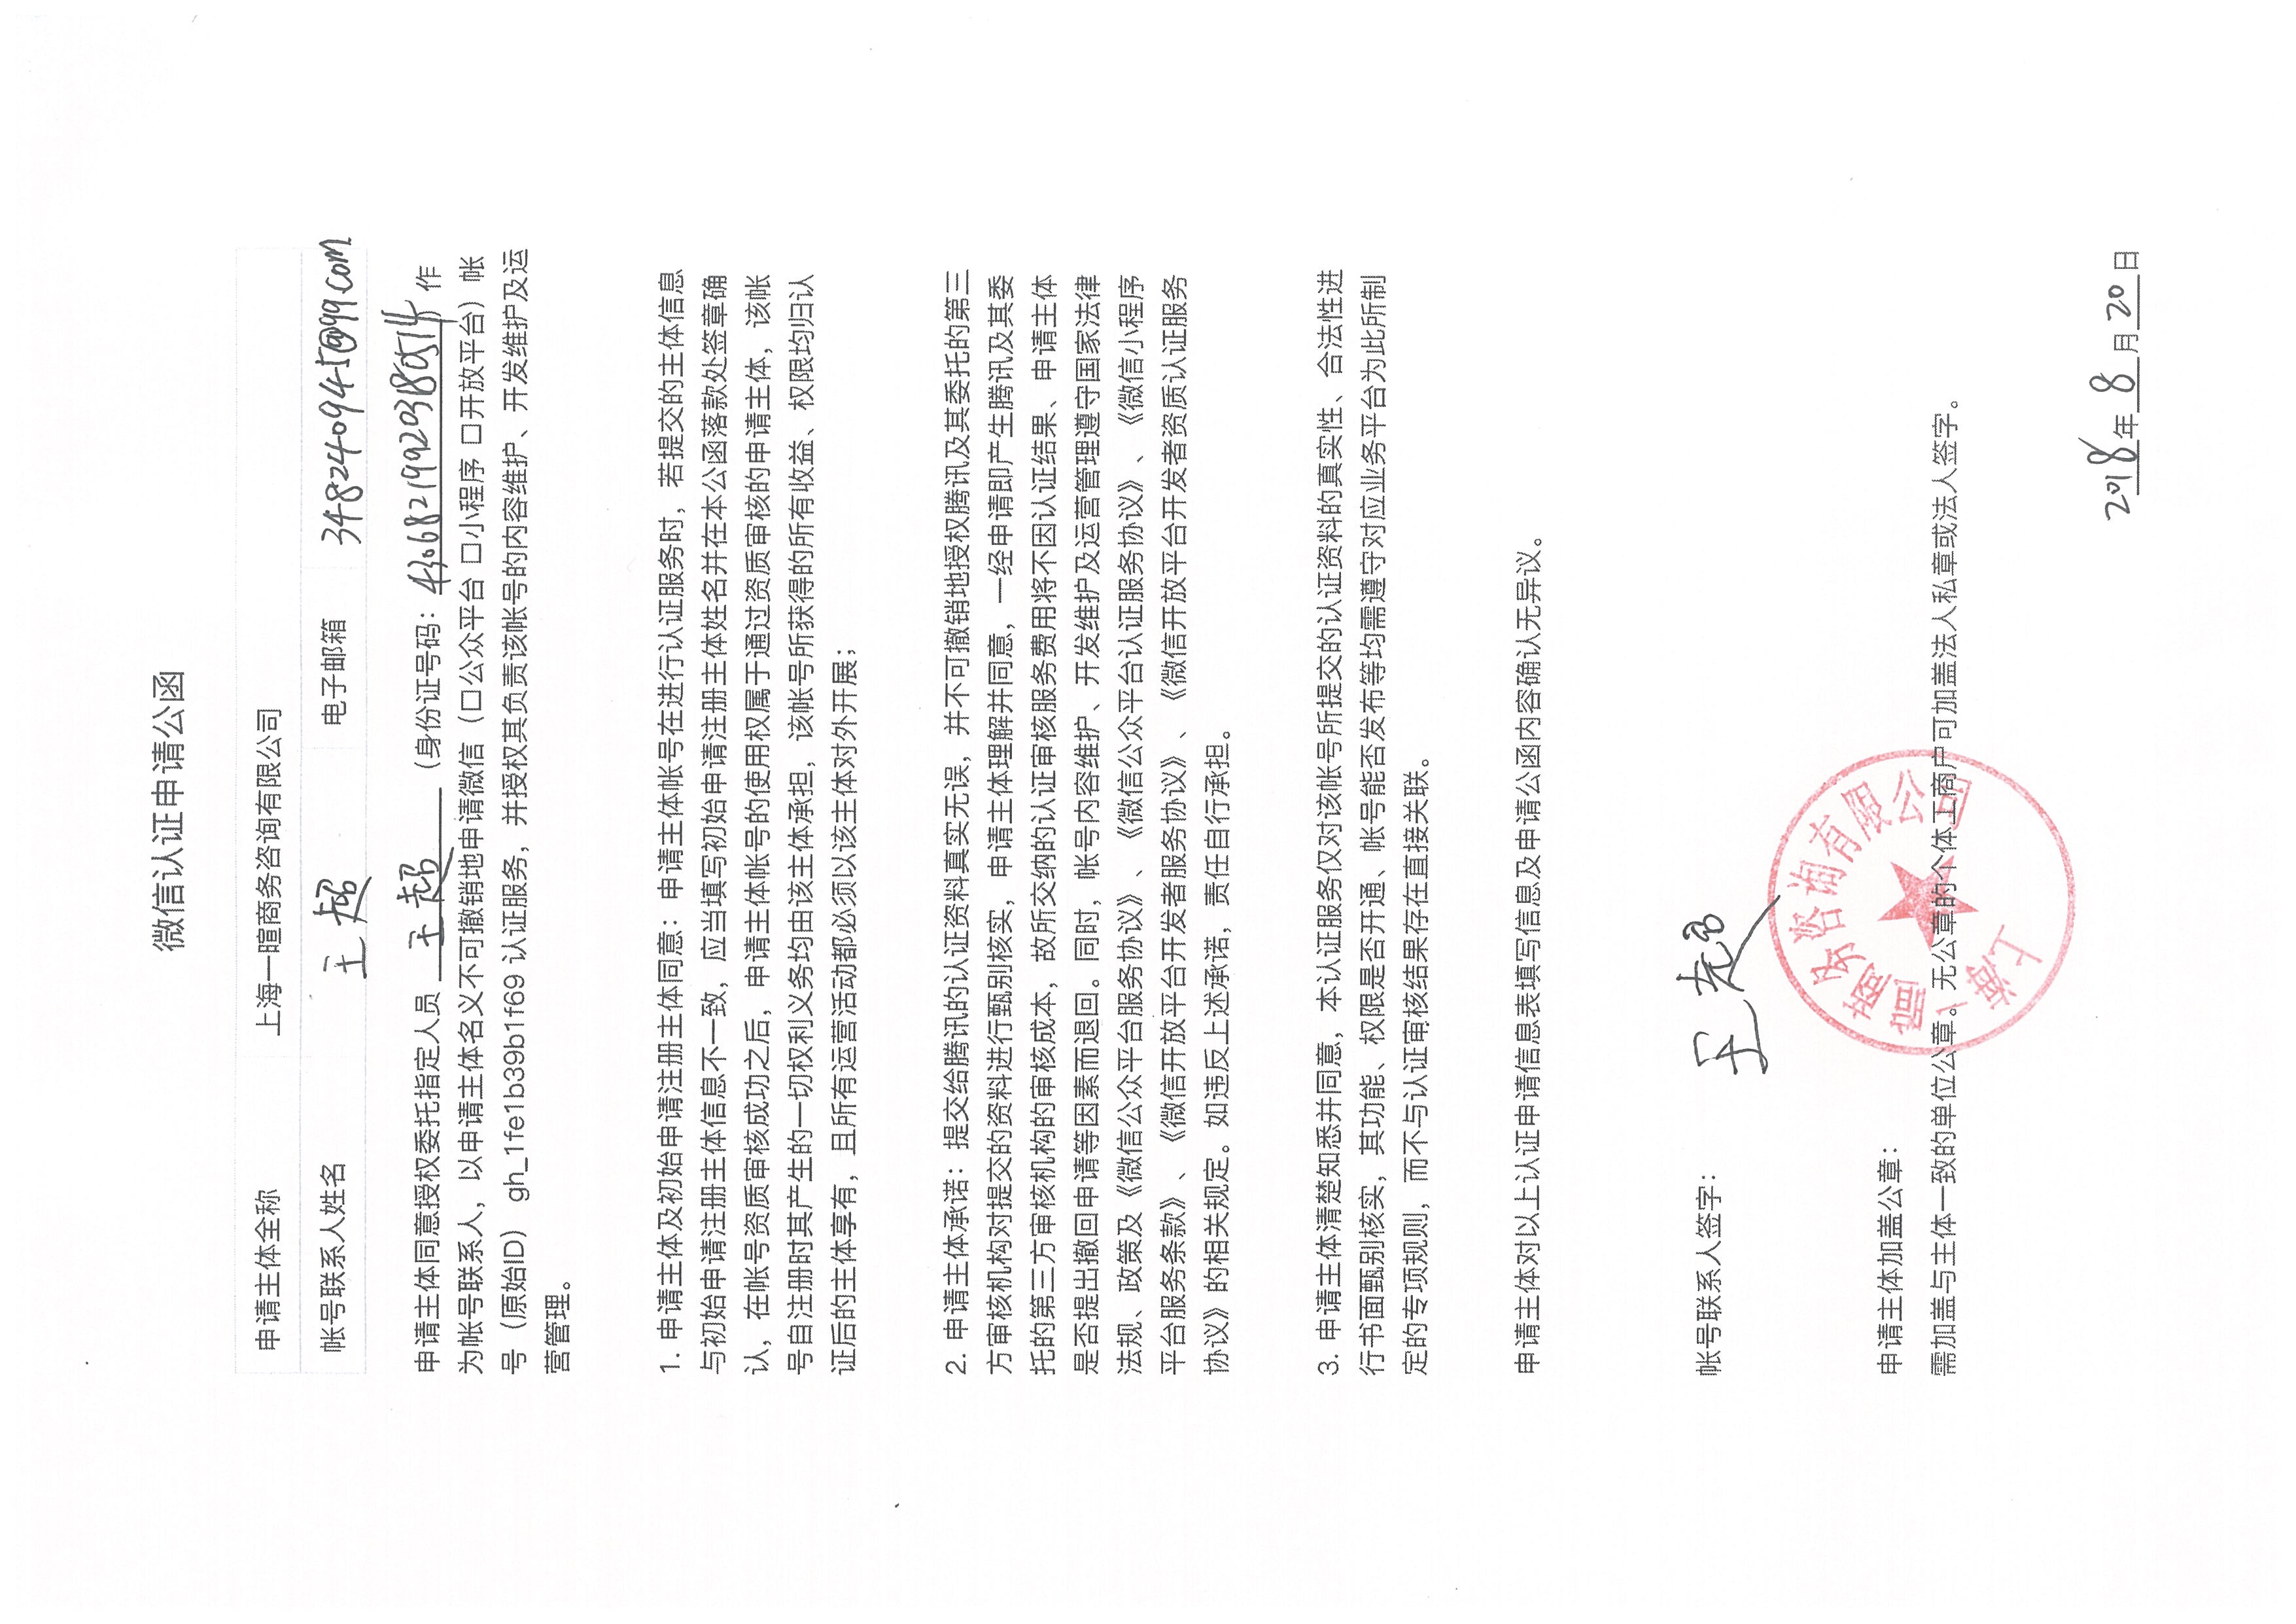 微信认证申请公函
申请主体全称 上海一暄商务咨询有限公司
帐号联系人姓名 王超 电子邮箱 348240945@qq.com
申请主体同意授权委托指定人员 王超 （身份证号码：430682199203180514 作
为帐号联系人，以申请主体名义不可撤销地申请微信（口公众平台 口小程序 口开放平台）帐
号（原始ID） gh_1fe1b39b1f69 认证服务，并授权其负责该帐号的内容维护、开发维护及运
营管理。
1. 申请主体及初始申请注册主体同意：申请主体帐号在进行认证服务时，若提交的主体信息
与初始申请注册主体信息不一致，应当填写初始申请注册主体姓名并在本公函落款处签章确
认，在帐号资质审核成功之后，申请主体帐号的使用权属于通过资质审核的申请主体，该帐
号自注册时其产生的一切权利义务均由该主体承担，该帐号所获得的所有收益、权限均归认
证后的主体享有，且所有运营活动都必须以该主体对外开展；
2. 申请主体承诺：提交给腾讯的认证资料真实无误，并不可撤销地授权腾讯及其委托的第三
方审核机构对提交的资料进行甄别核实，申请主体理解并同意，一经申请即产生腾讯及其委
托的第三方审核机构的审核成本，故所交纳的认证审核服务费用将不因认证结果、申请主体
是否提出撤回申请等因素而退回。同时，帐号内容维护、开发维护及运营管理遵守国家法律
法规、政策及《微信公众平台服务协议》、《微信公众平台认证服务协议》、《微信小程序
平台服务条款》、《微信开放平台开发者服务协议》、《微信开放平台开发者资质认证服务
协议》的相关规定。如违反上述承诺，责任自行承担。
3. 申请主体清楚知悉并同意，本认证服务仅对该帐号所提交的认证资料的真实性、合法性进
行书面甄别核实，其功能、权限是否开通、帐号能否发布等均需遵守对应业务平台为此所制
定的专项规则，而不与认证审核结果存在直接关联。
申请主体对以上认证申请信息表填写信息及申请公函内容确认无异议。
帐号联系人签字： 王超
申请主体加盖公章：
需加盖与主体一致的单位公章。无公章的个体工商户可加盖法人私章或法人签字。
上海一暄商务咨询有限公司
2018年8月20日